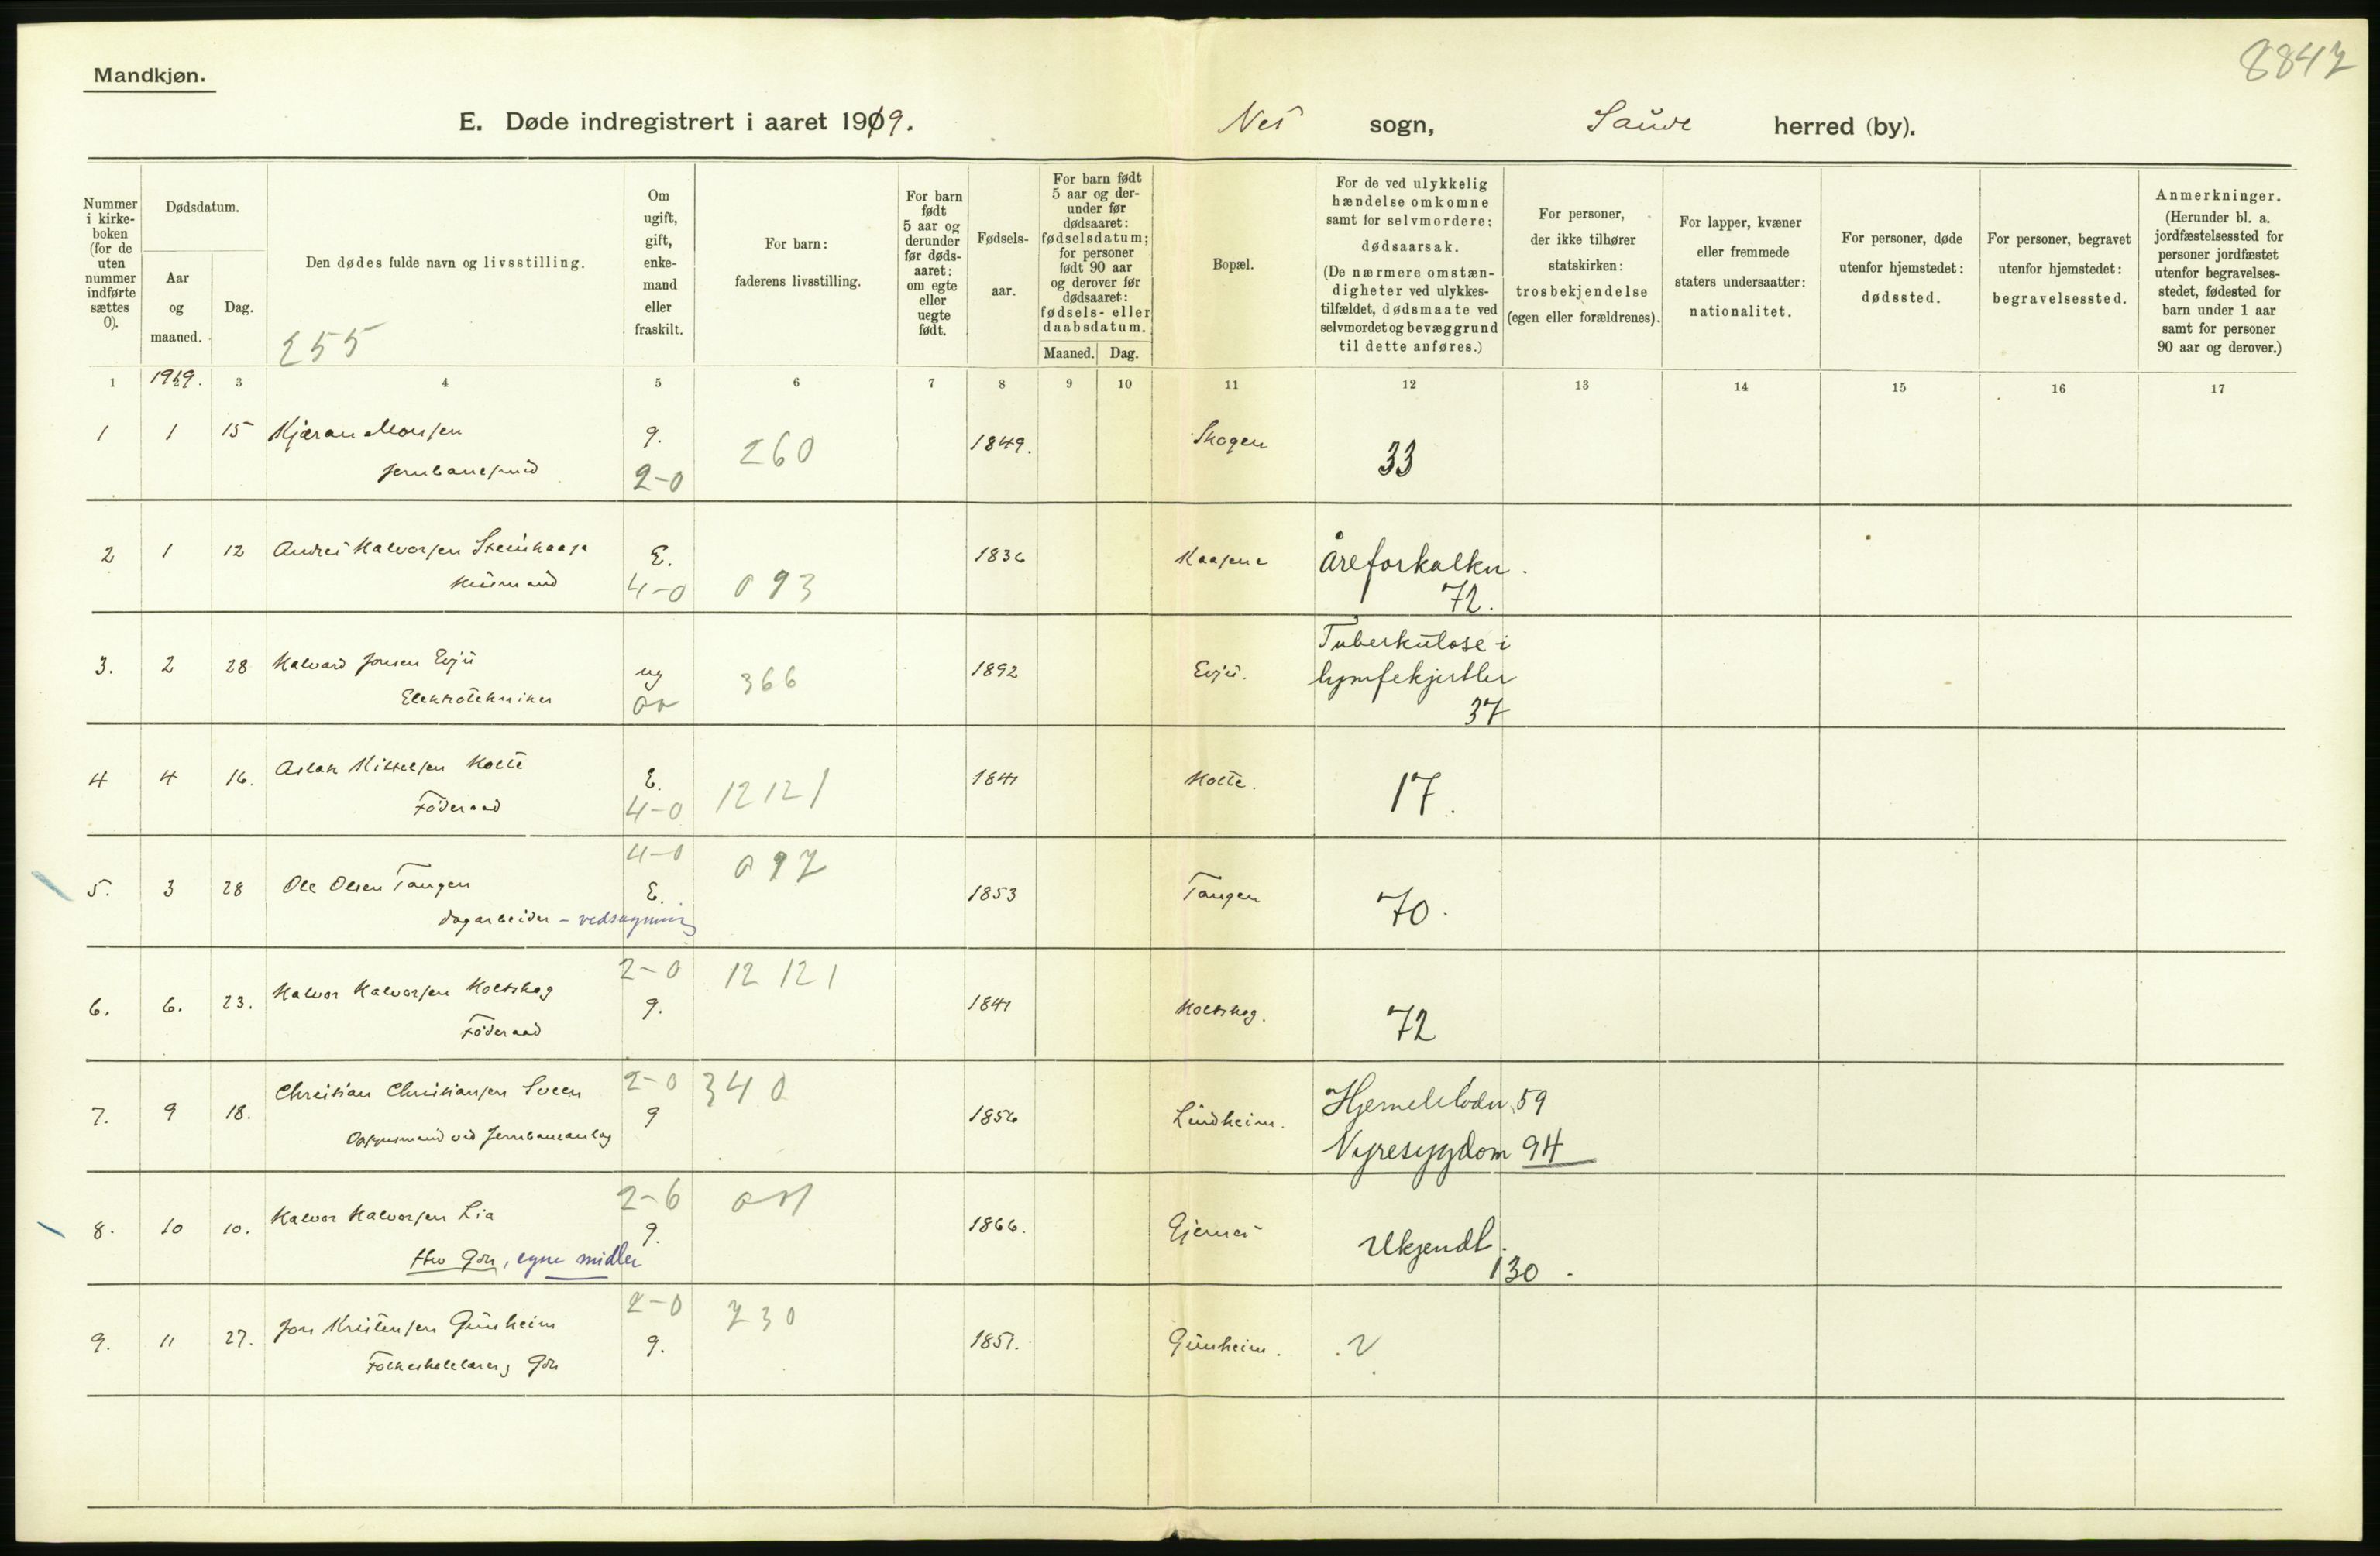 8847
Mandkjøn.
E. Døde indregistrert i aaret 1919.
Nes sogn, Saude herred (by).
Nummer i kirke-boken (for de uten nummer indførte sættes 0).
Dødsdatum.
Aar og maaned.
Dag.
Den dødes fulde navn og livsstilling.
255
Om ugift, gift, enke-mand eller fraskilt.
For barn: faderens livsstilling.
For barn født 5 aar og derunder før døds-aaret: om egte eller uegte født.
Fødsels-aar.
For barn født 5 aar og der-under før dødsaaret: fødselsdatum; for personer født 90 aar og derover før dødsaaret: fødsels- eller daabsdatum.
Maaned. Dag.
Bopæl.
For de ved ulykkelig hændelse omkomne samt for selvmordere: dødsaarsak.
(De nærmere omstæn-digheter ved ulykkes-tilfældet, dødsmaate ved selvmordet og bevæggrund til dette anføres.)
For personer, der ikke tilhører statskirken: trosbekjendelse (egen eller forældrenes).
For lapper, kvæner eller fremmede staters undersaatter: nationalitet.
For personer, døde utenfor hjemstedet: dødssted.
For personer, begravet utenfor hjemstedet: begravelsessted.
Anmerkninger.
(Herunder bl. a. jordfæstelsessted for personer jordfæstet utenfor begravelses-stedet, fødested for barn under 1 aar samt for personer 90 aar og derover.)
1 1919. 3 4 5 6 7 8 9 10 11 12 13 14 15 16 17
1 1 15 Kjøran Monsen g. 260 1849. Skogen 33
Jernbanesmed 2-0
2 1 12 Andres Halvorsen Steinhaasa E. 1836 Haasene Åreforkalkn.
Husmand 4-0 093 72.
3. 2 28 Halvard Jonsen Evju ug 366 1892 Evju. Tuberkulose i
lymfekjertler
Elektrotekniker 37
4 4 16. Aslak Kittelsen Holte E. 1841 Holte. 17.
Föderaad 4-0 12 12 1
4-0 097
5. 3 28 Ole Olsen Tangen E. 1853 Tangen 70.
dagarbeider – vedsagning
2-0 12 12 1
6. 6. 23. Halvor Halvorsen Holtskog g. 1841 Holtskog. 72
Föderaad
2-0 340
7. 9 18. Christian Christiansen Sveen g 1856 Lindheim. Hjerneblødn. 59
Opsynsmand ved Jernbaneanlæg Nyresygdom 94
2-6
8. 10 10. Halvor Halvorsen Lia g. 1866. Gjernes Ukjendt.
Gdr, egne midler 130.
2-0 730
9. 11 27. Jon Kristensen Gunheim g. 1851. Gunheim. .V
Folkeskolelærer, Gdr